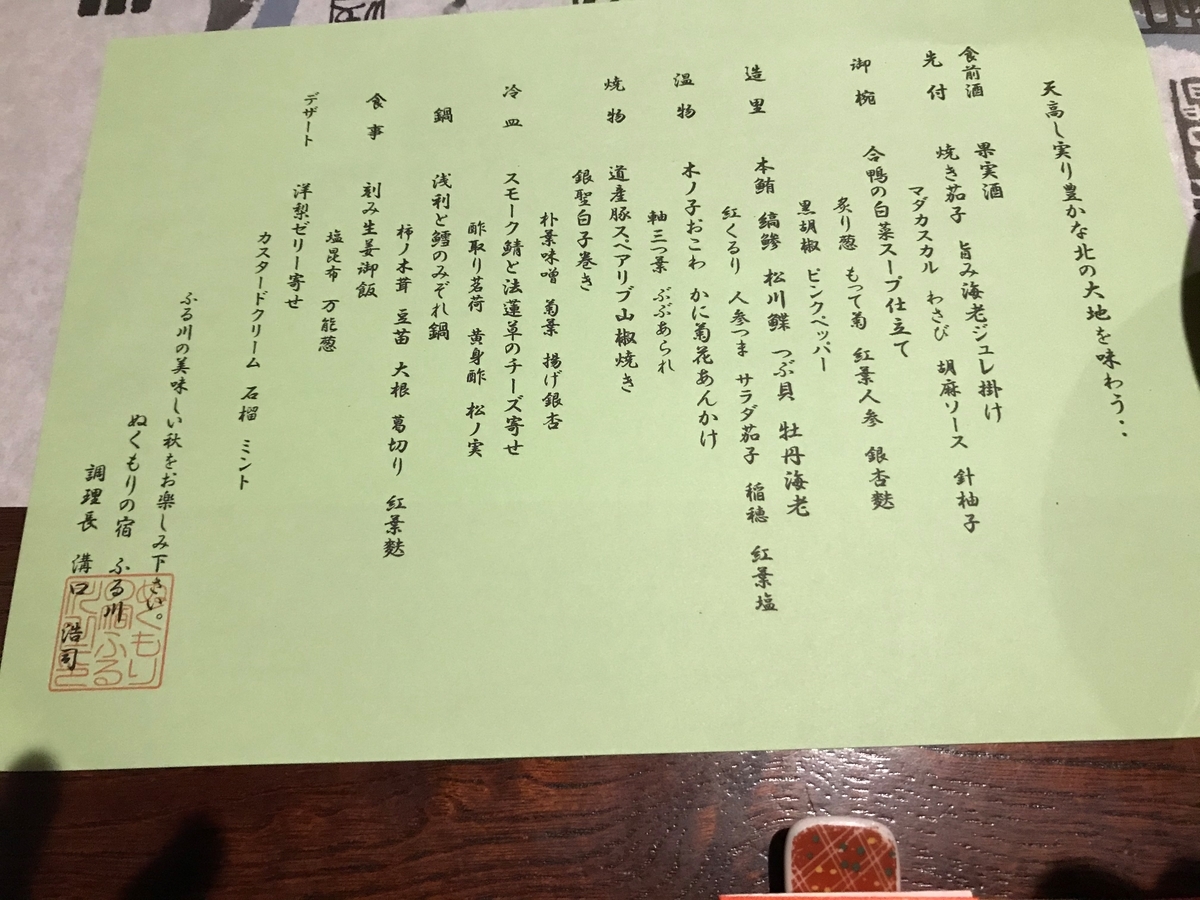 天高し実り豊かな北の大地を味わう‥
食前酒 果実酒
先付 焼き茄子 旨み海老ジュレ掛け
マダカスカル わさび 胡麻ソース 針柚子
御椀 合鴨の白菜スープ仕立て
炙り葱 もって菊 紅葉人参 銀杏麩
黒胡椒 ピンクペッパー
造里 本鮪 縞鯵 松川鰈 つぶ貝 牡丹海老
紅くるり 人参つま サラダ茄子 稲穂 紅葉塩
温物 木ノ子おこわ かに菊花あんかけ
軸三つ葉 ぶぶあられ
焼物 道産豚スペアリブ山椒焼き
銀聖白子巻き
朴葉味噌 菊葉 揚げ銀杏
冷皿 スモーク鯖と法蓮草のチーズ寄せ
酢取り茗荷 黄身酢 松ノ実
鍋 浅利と鱈のみぞれ鍋
柿ノ木茸 豆苗 大根 葛切り 紅葉麩
食事 刻み生姜御飯
塩昆布 万能葱
デザート 洋梨ゼリー寄せ
カスタードクリーム 石榴 ミント
ふる川の美味しい秋をお楽しみ下さい。
ぬくもりの宿 ふる川
調理長 溝口 浩司